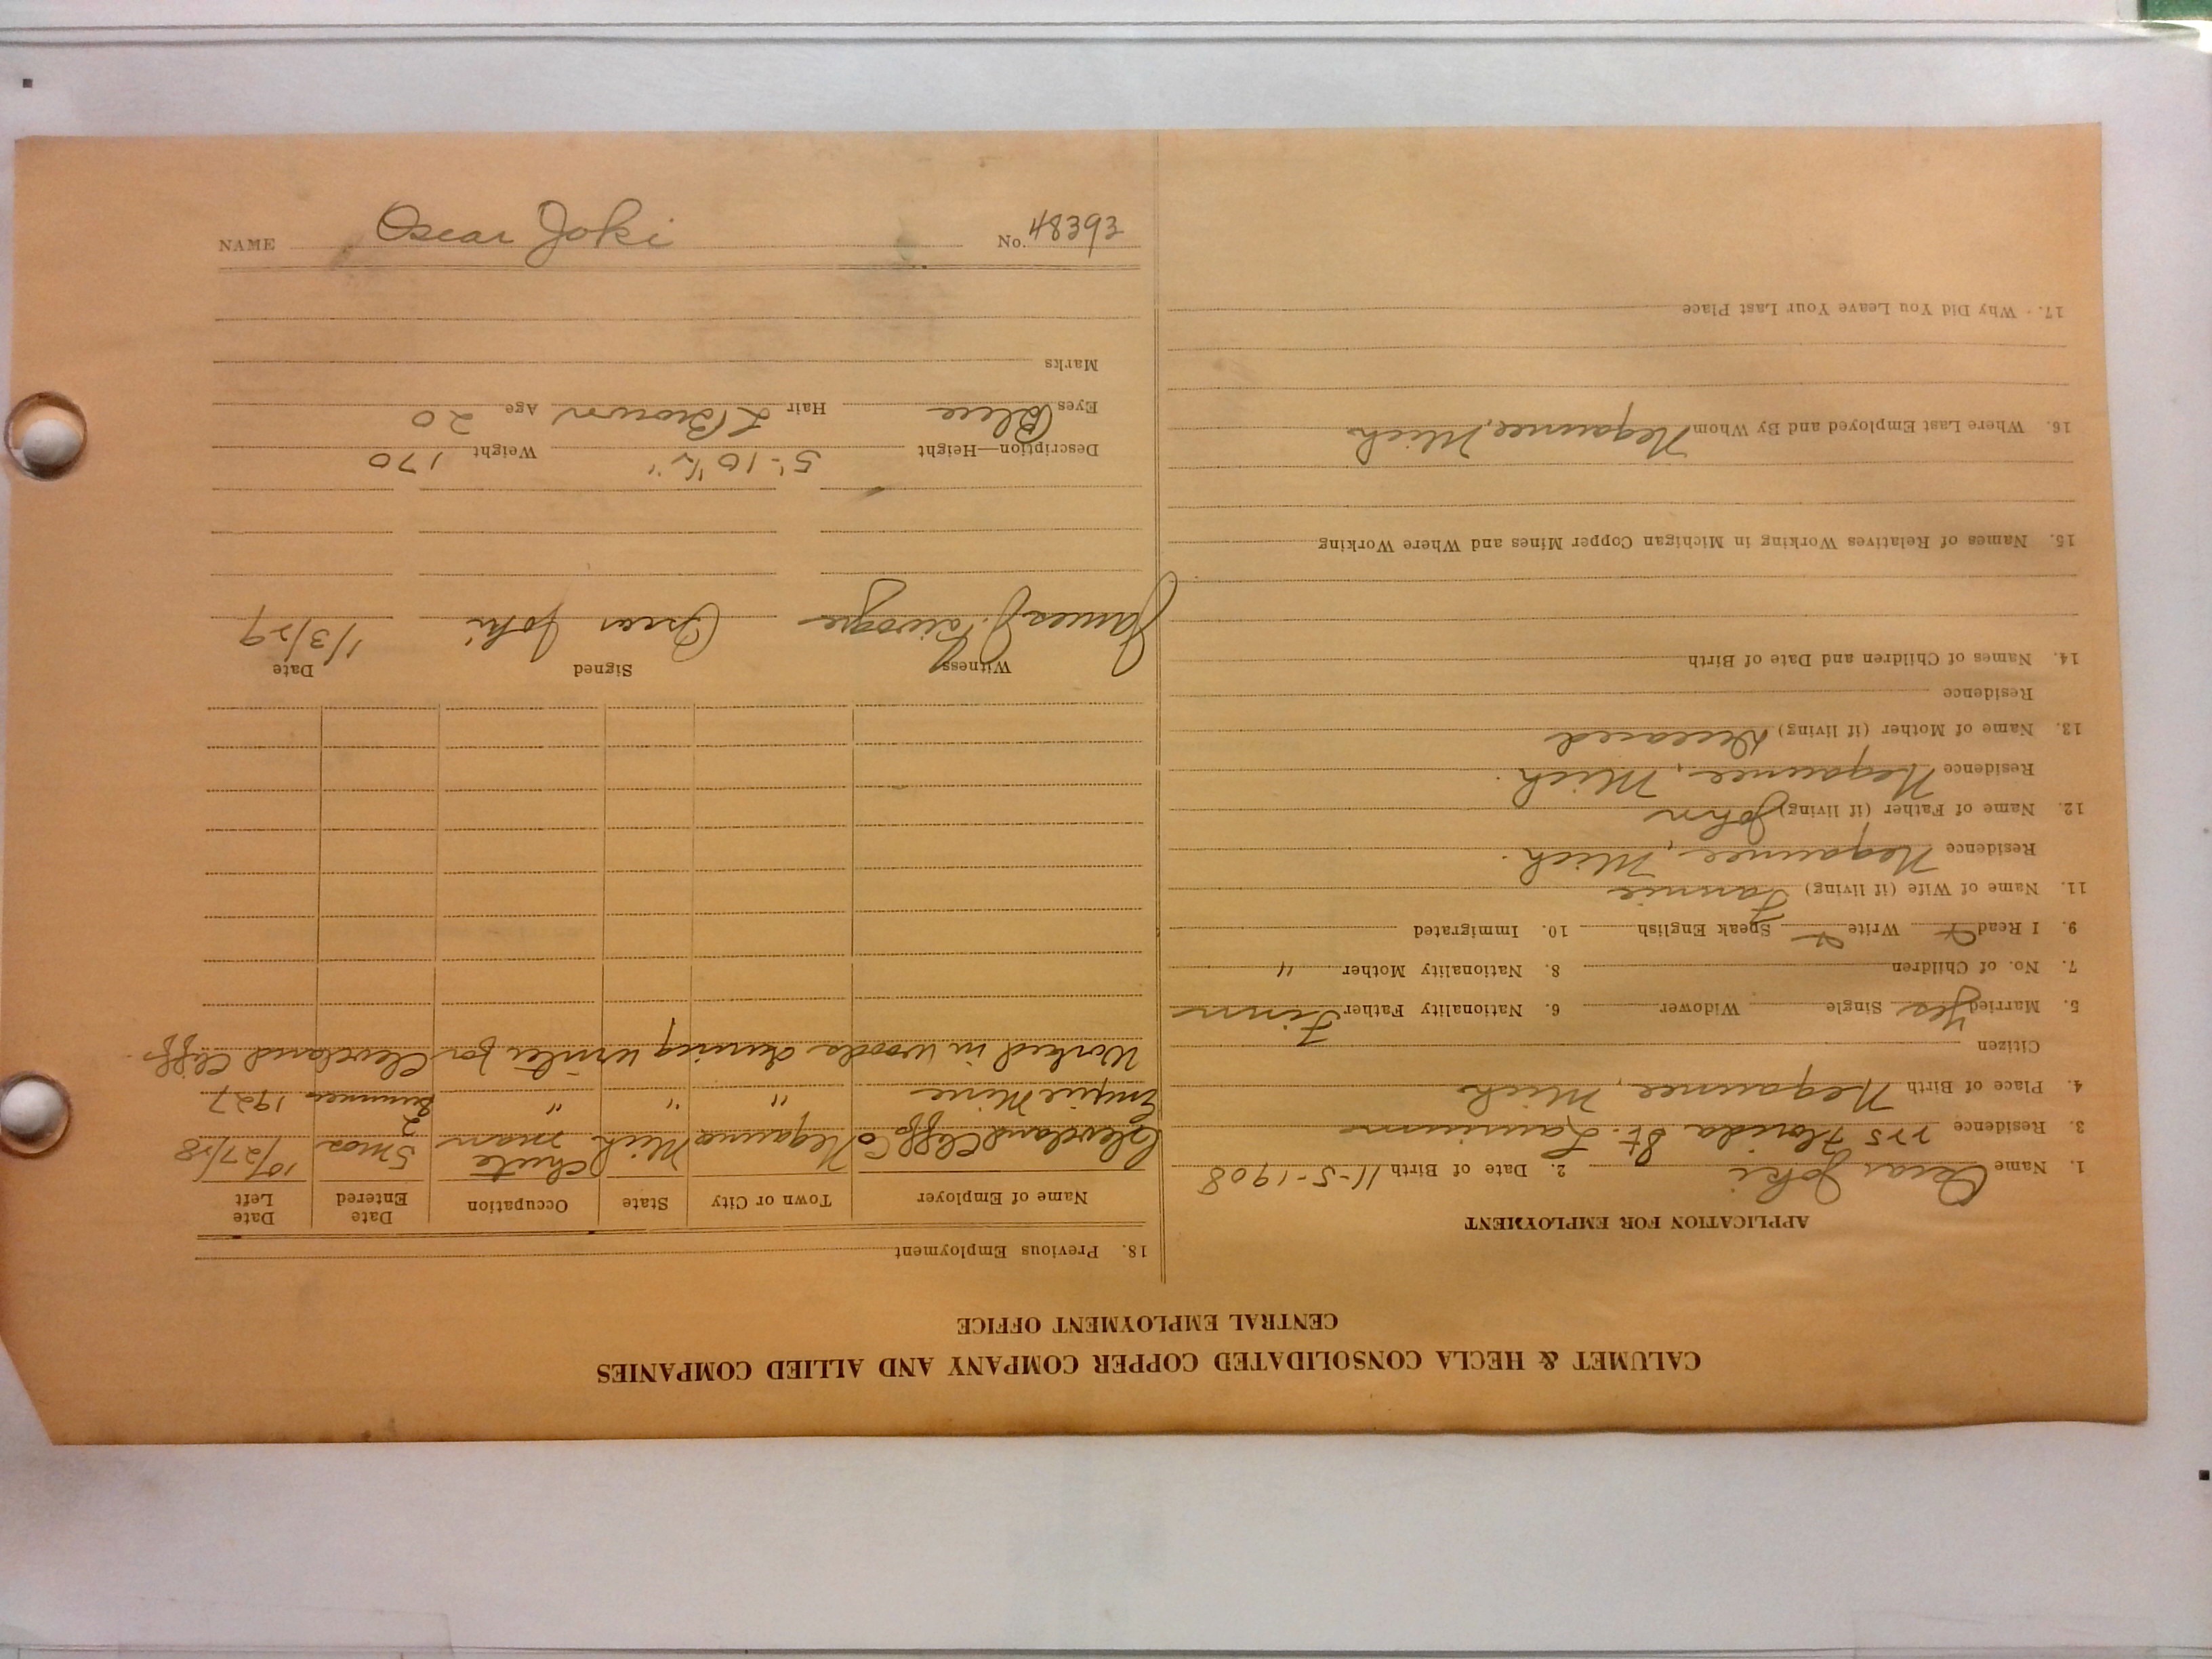 CALUMET & HECLA CONSOLIDATED COPPER COMPANY AND ALLIED COMPANIES
CENTRAL EMPLOYMENT OFFICE
APPLICATION FOR EMPLOYMENT
1. Name Oscar Joki 2. Date of Birth 11-5-1908
3. Residence 225 Florida St. Laurium
4. Place of Birth Negaunee, Mich
Citizen
5. Married Yes Single Widower 6. Nationality Father Finn
7. No. of Children 8. Nationality Mother "
9. I Read Write Speak English 10. Immigrated
11. Name of Wife (if living) Fannie
Residence Negaunee, Mich.
12. Name of Father (if living) John
Residence Negaunee, Mich.
13. Name of Mother (if living) Deceased
Residence
14. Names of Children and Date of Birth
15. Names of Relatives Working in Michigan Copper Mines and Where Working
16. Where Last Employed and By Whom Negaunee, Mich
17. Why Did You Leave Your Last Place
18. Previous Employment
Name of Employer Town or City State Occupation Date Entered Date Left
Cleveland Cliffs Co Negaunee Mich Chute man 5 mos 10/27/28
Empire Mine " " " 2 Summers 1927
Worked in woods during winter for Cleveland Cliffs.
Witness Signed Date
James J. Oscar Joki 1/3/29
Description—Height 5'-10 1/2" Weight 170
Eyes Blue Hair L Brown Age 20
Marks
NAME Oscar Joki No. 48393